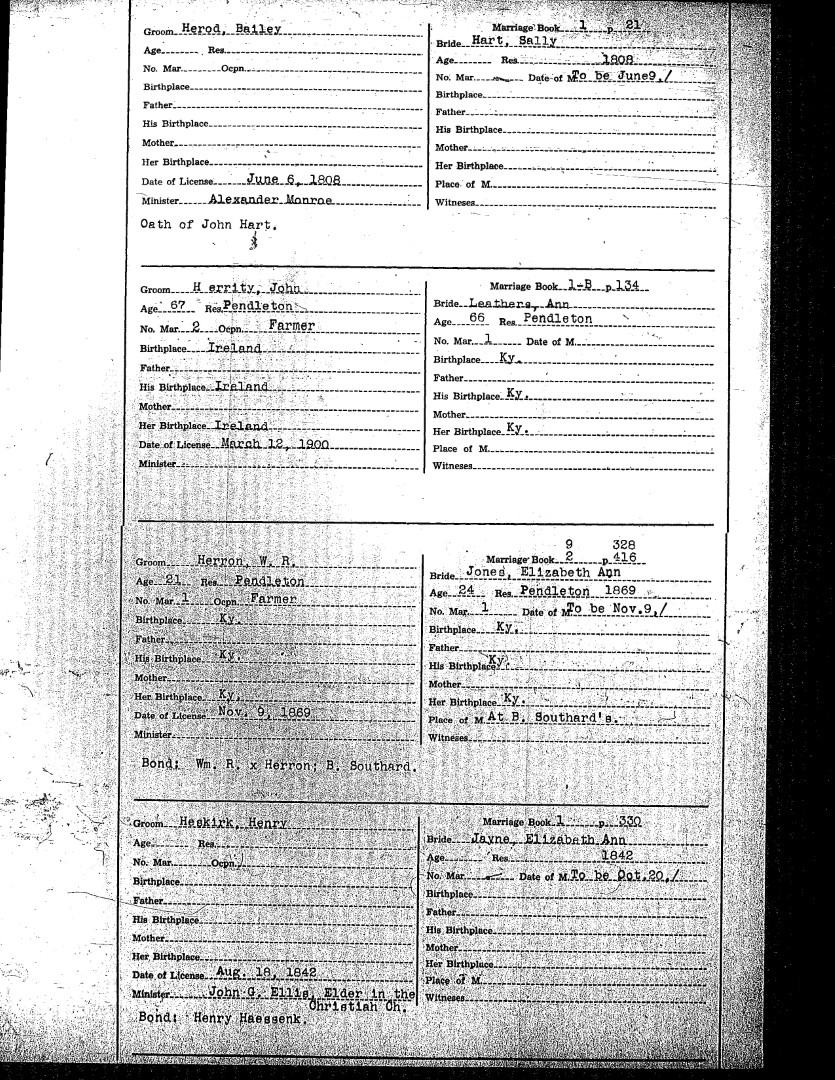 Groom Herod, Bailey
Age Res.
No. Mar. Ocpn.
Birthplace
Father
His Birthplace
Mother
Her Birthplace
Date of License June 6, 1808
Minister Alexander Monroe
Marriage Book 1 p. 21
Bride Hart, Sally
Age Res. 1808
No. Mar. Date of M. To be June9,/
Birthplace
Father
His Birthplace
Mother
Her Birthplace
Place of M.
Witnesses
Oath of John Hart.
Groom H errity, John
Age 67 Res. Pendleton
No. Mar. 2 Ocpn. Farmer
Birthplace Ireland
Father
His Birthplace Ireland
Mother
Her Birthplace Ireland
Date of License March 12, 1900
Minister
Marriage Book 1-B p. 134
Bride Leathers, Ann
Age 66 Res. Pendleton
No. Mar. 1 Date of M.
Birthplace Ky.
Father
His Birthplace Ky.
Mother
Her Birthplace Ky.
Place of M.
Witnesses
Groom Herron, W. R.
Age 21 Res. Pendleton
No. Mar. 1 Ocpn. Farmer
Birthplace Ky.
Father
His Birthplace Ky.
Mother
Her Birthplace Ky.
Date of License Nov. 9, 1869
Minister
9 328
Marriage Book 2 p. 416
Bride Jones, Elizabeth Ann
Age 24 Res. Pendleton 1869
No. Mar. 1 Date of M. To be Nov.9,/
Birthplace Ky.
Father
His Birthplace Ky.
Mother
Her Birthplace Ky.
Place of M. At B. Southard's.
Witnesses
Bond: Wm. R. x Herron; B. Southard.
Groom Heskirk, Henry
Age Res.
No. Mar. Ocpn.
Birthplace
Father
His Birthplace
Mother
Her Birthplace
Date of License Aug. 18, 1842
Minister John G. Ellis, Elder in the
Christian Ch.
Marriage Book 1 p. 330
Bride Jayne, Elizabeth Ann
Age Res. 1842
No. Mar. Date of M. To be Oct.20,/
Birthplace
Father
His Birthplace
Mother
Her Birthplace
Place of M.
Witnesses
Bond: Henry Haessenk.